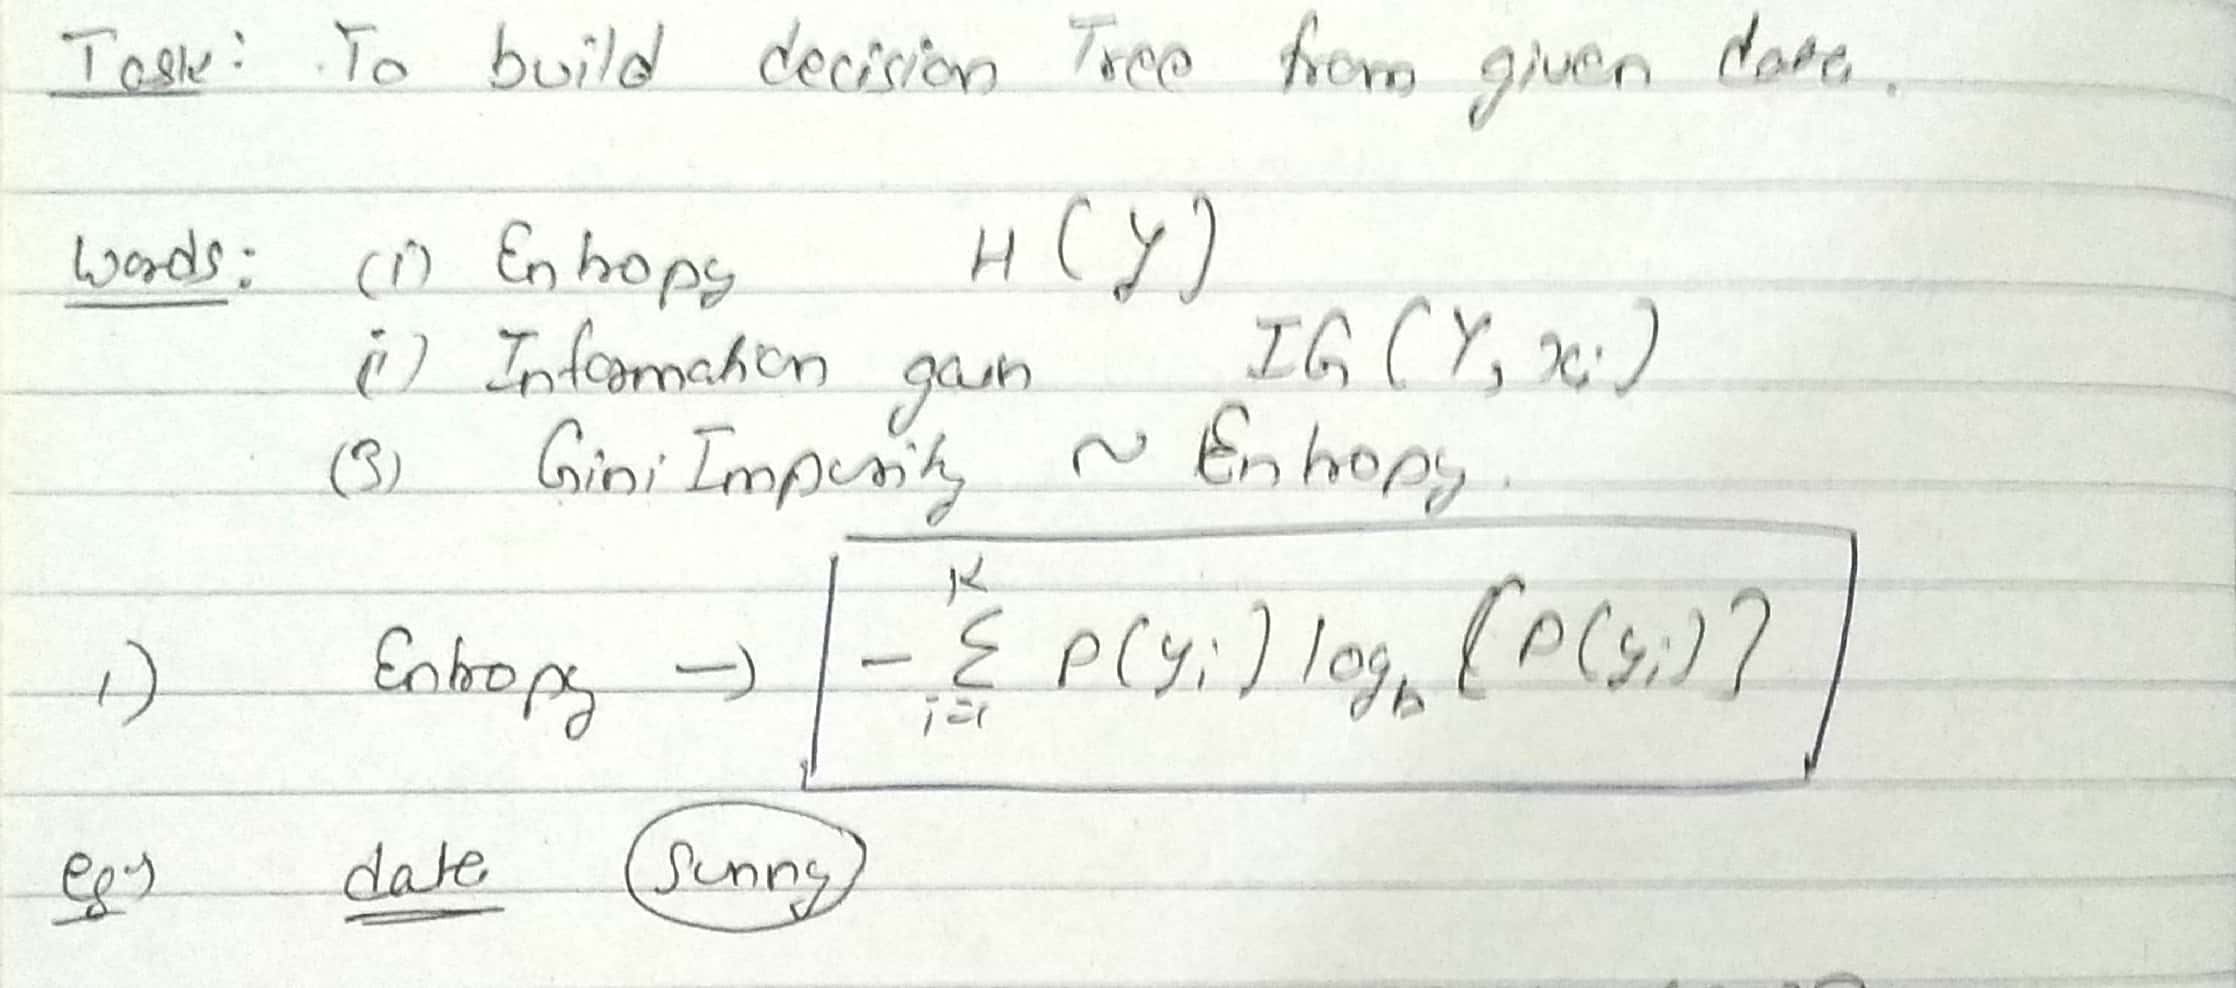 Task: To build decision Tree from given data.
Words: (i) Entropy H(Y)
ii) Information gain IG(Y, xi)
(3) Gini Impurity ~ Entropy.
1) Entropy → - K Σ i=1 P(yi) log_b {P(yi)}
eg:) date Sunny